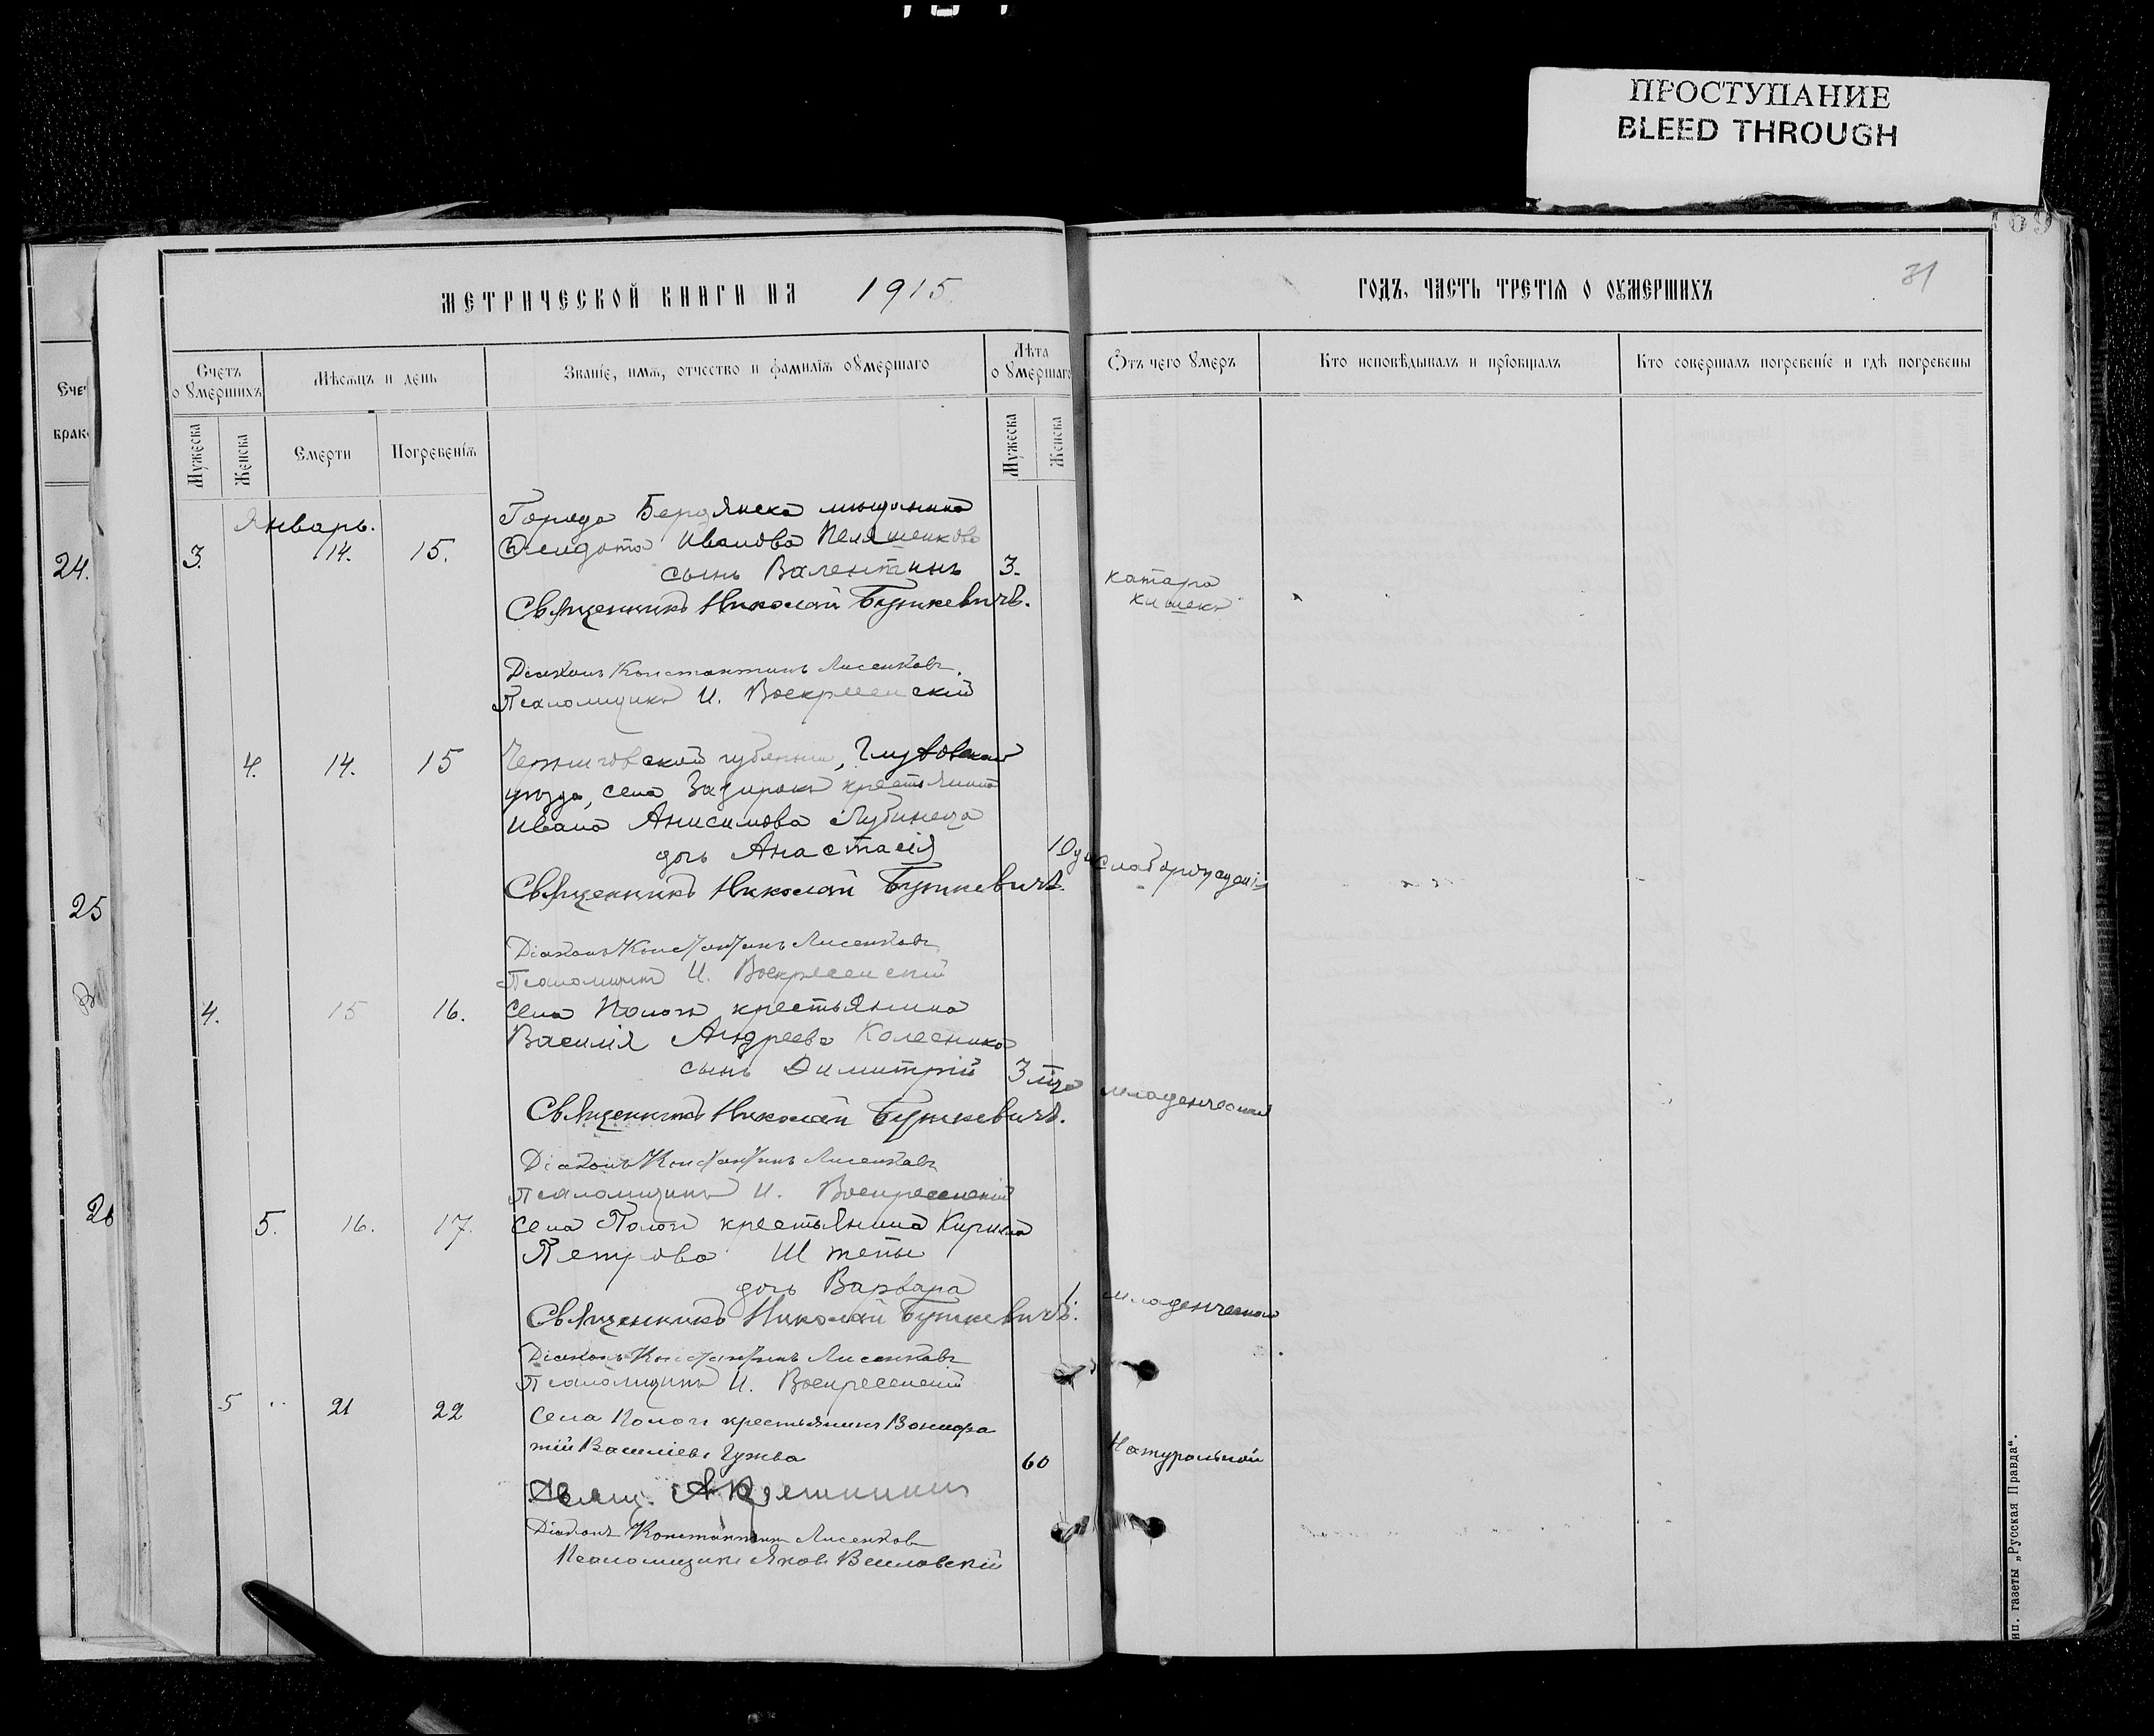 ПРОСТУПАНИЕ
BLEED THROUGH
МЕТРИЧЕСКОЙ КНИГИ НА 1915
ГОДЪ, ЧАСТЬ ТРЕТІЯ О ОУМЕРШИХЪ
31
169
Счетъ о умершихъ
Мѣсяцъ и день
Званіе, имя, отчество и фамилія оумершаго
Лѣта о умершаго
Отъ чего умеръ
Кто исповѣдывалъ и пріобщалъ
Кто совершалъ погребеніе и гдѣ погребены
Мужеска
Женска
Смерти
Погребенія
Мужеска
Женска
Январь.
Города Бердянска мѣщанина
3. 14. 15. Ѳеодота Иванова
сынъ Валентинъ 3. катара
кишекъ
Священникъ Николай Буткевичъ.
Діаконъ Константинъ Лисенковъ
Псаломщикъ И. Воскресенскій
4. 14. 15 Черниговской губерніи, Глуховскаго
уѣзда, села крестьянина
Ивана Анисимова
дочь Анастасія
Священникъ Николай Буткевичъ.
Діаконъ Константинъ Лисенковъ
Псаломщикъ И. Воскресенскій
4. 15 16. Села Пологи крестьянина
Василія Андреева Колесника
сынъ Димитрій 3 младенческой
Священникъ Николай Буткевичъ.
Діаконъ Константинъ Лисенковъ
Псаломщикъ И. Воскресенскій
5. 16. 17. Села Пологи крестьянина Кирилла
Петрова Штепы
дочь Варвара 1. младенческой
Священникъ Николай Буткевичъ.
Діаконъ Константинъ Лисенковъ
Псаломщикъ И. Воскресенскій
5 21 22 Села Пологи крестьянинъ Вонифа
тій Василіевъ Гужва 60 Натуральной
Свящ.
Діаконъ Константинъ Лисенковъ
Псаломщикъ Яковъ
24.
25
26
ип. газеты „Русская Правда“.